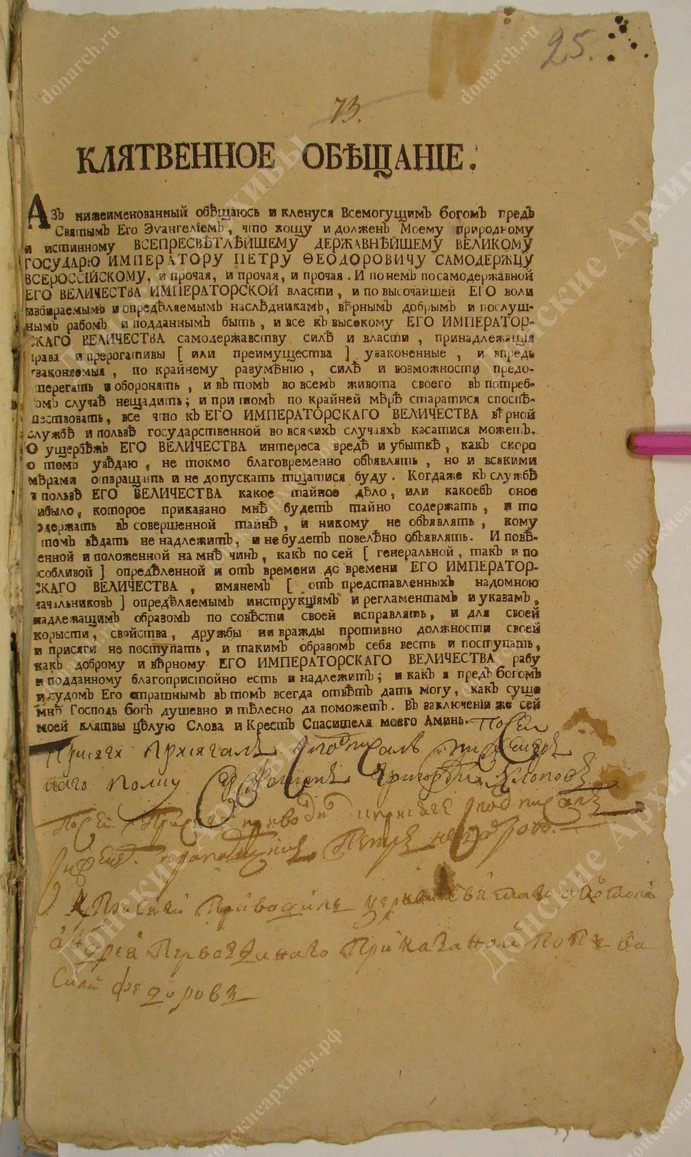 25.
73.
КЛЯТВЕННОЕ ОБѢЩАНІЕ.
АЗЪ нижеименованный обѣщаюсь и кленуся Всемогущимъ богомъ предъ
Святымъ Его Эуангелїемъ, что хощу и долженъ Моему природному
и истинному ВСЕПРЕСВѢТЛѢЙШЕМУ ДЕРЖАВНѢЙШЕМУ ВЕЛИКОМУ
ГОСУДАРЮ ИМПЕРАТОРУ ПЕТРУ ѲЕОДОРОВИЧУ САМОДЕРЖЦУ
ВСЕРОССІЙСКОМУ, и прочая, и прочая, и прочая. И по немъ по самодержавной
ЕГО ВЕЛИЧЕСТВА ИМПЕРАТОРСКОЙ власти, и по высочайшей ЕГО воли
избираемымъ и опредѣляемымъ наслѣдникамъ, вѣрнымъ добрымъ и послуш-
нымъ рабомъ и подданнымъ быть, и все къ высокому ЕГО ИМПЕРАТОР-
СКАГО ВЕЛИЧЕСТВА самодержавству силѣ и власти, принадлежащїя
права и прерогативы [ или преимущества ] узаконенные, и впредь
узаконяемыя, по крайнему разумѣнїю, силѣ и возможности предо-
стерегать и оборонять, и въ томъ во всемъ живота своего въ потреб-
номъ случаѣ нещадить; и при томъ по крайней мѣрѣ старатися споспѣ-
шествовать, все что къ ЕГО ИМПЕРАТОРСКАГО ВЕЛИЧЕСТВА вѣрной
службѣ и пользѣ государственной во всякихъ случаяхъ касатися можетъ.
О ущербѣжъ ЕГО ВЕЛИЧЕСТВА интереса вредѣ и убыткѣ, какъ скоро
о томъ увѣдаю, не токмо благовременно объявлять, но и всякими
мѣрами отвращать и не допускать тщатися буду. Когдаже къ службѣ
и пользѣ ЕГО ВЕЛИЧЕСТВА какое тайное дѣло, или какоебъ оное
нибыло, которое приказано мнѣ будетъ тайно содержать, и то
содержать въ совершенной тайнѣ, и никому не объявлять, кому
о томъ вѣдать не надлежитъ, и не будетъ повелѣно объявлять. И повѣ-
ренной и положенной на мнѣ чинъ, какъ по сей [ генеральной, такъ и по
особливой ] опредѣленной и отъ времени до времени ЕГО ИМПЕРАТОР-
СКАГО ВЕЛИЧЕСТВА, имянемъ [ отъ представленныхъ надомною
начальниковъ ] опредѣляемымъ инструкціямъ и регламентамъ и указамъ,
надлежащимъ образомъ по совѣсти своей исправлять, и для своей
корысти, свойства, дружбы ни вражды противно должности своей
и присяги не поступать, и такимъ образомъ себя весть и поступать,
какъ доброму и вѣрному ЕГО ИМПЕРАТОРСКАГО ВЕЛИЧЕСТВА рабу
и подданному благопристойно есть и надлежитъ; и какъ я предъ богомъ
и судомъ Его страшнымъ въ томъ всегда отвѣтъ дать могу, какъ суще
мнѣ Господь богъ душевно и тѣлесно да поможетъ. Въ заключенїи же сей
моей клятвы цѣлую Слова и Крестъ Спасителя моего Аминь. По сеи
Присяге присягалъ
наго полку Григореи
По сеи присяге приводилъ подписалъ
Петръ
К присяги приводилъ церкви
андрея Первозванаго попъ ва
сили федоровъ
donarch.ru
donarch.ru
Донские Архивы
донскиеархивы.рф